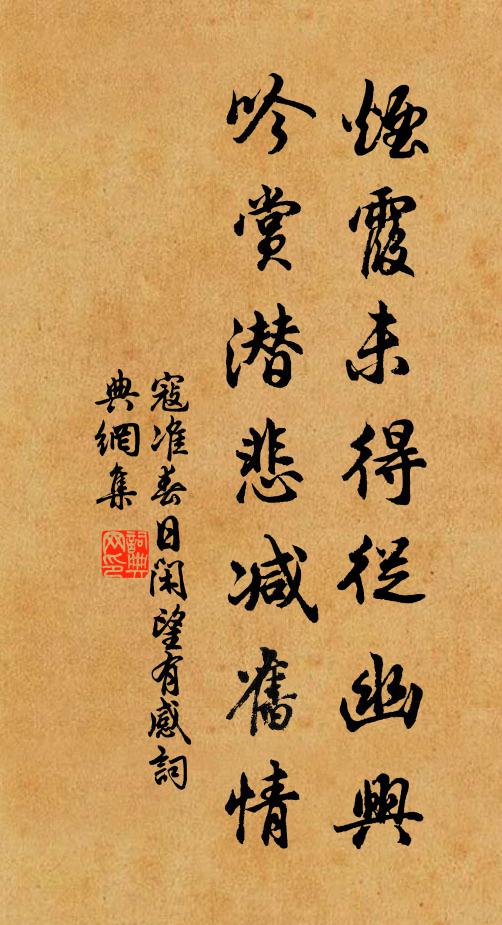 煙霞未得從幽興
吟賞潛悲減舊情
寇准春日閑望有感詞
典網集
詞典
网印